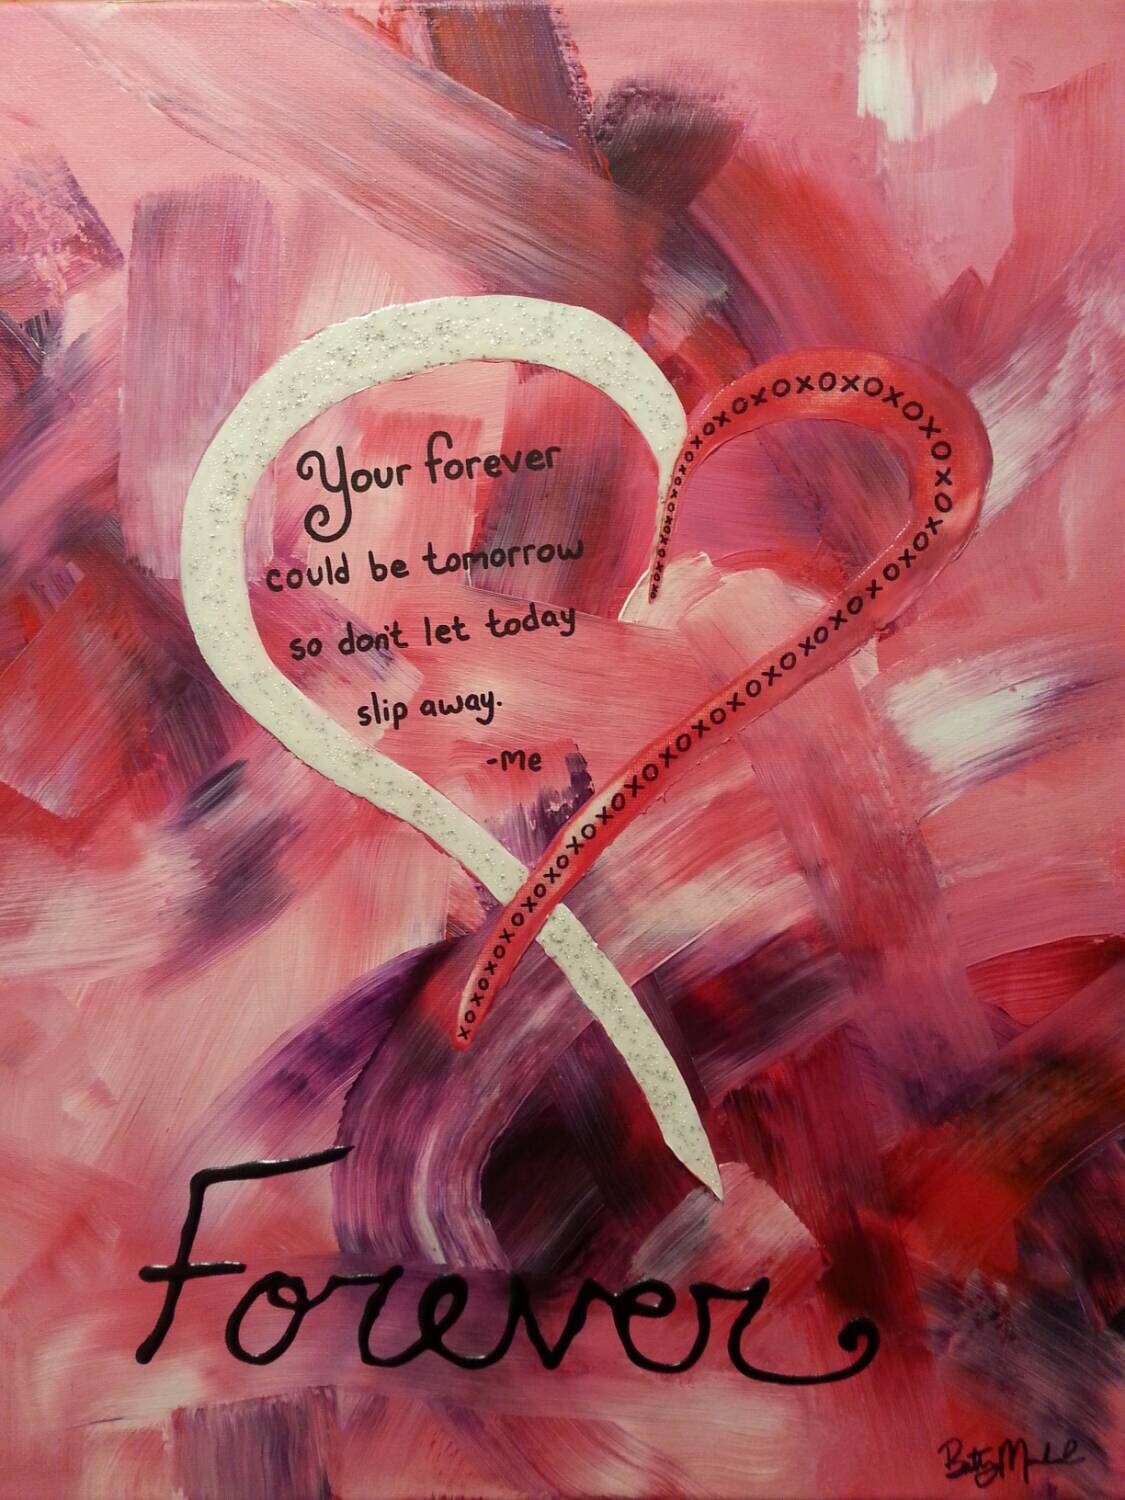 Your forever
could be tomorrow
so don't let today
slip away.
-Me
xoxoxoxoxoxoxoxoxoxoxoxoxoxoxoxoxoxoxoxoxoxoxoxoxoxoxoxoxoxox
Forever